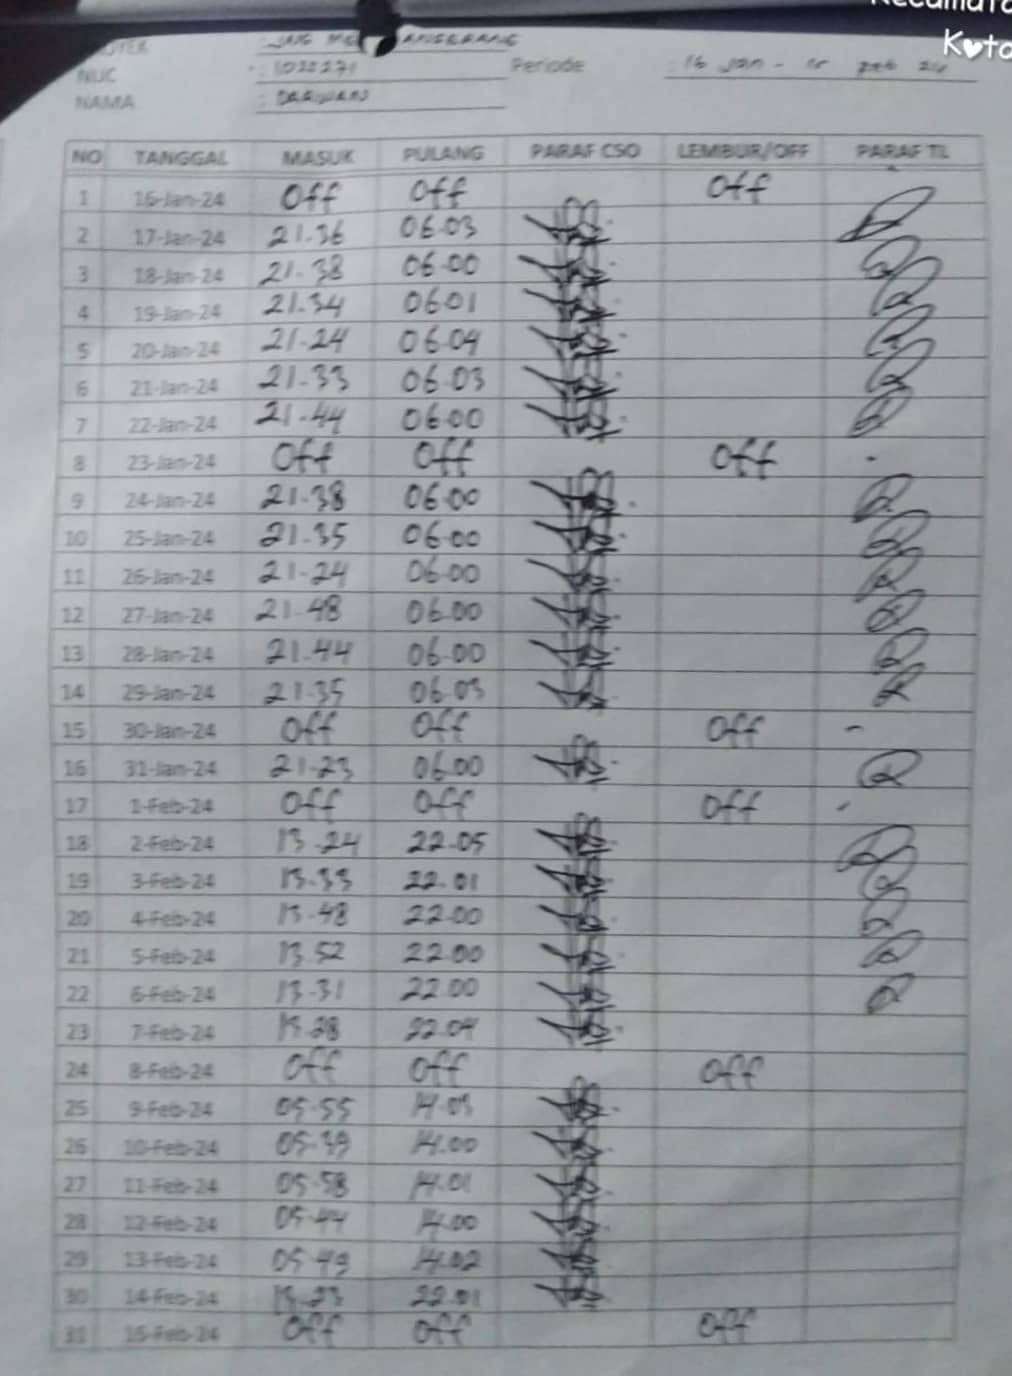 K♥to
NUC : 1032271 Periode : 16 Jan - 15 Feb 24
NAMA : DARWAN
NO TANGGAL MASUK PULANG PARAF CSO LEMBUR/OFF PARAF TL
1 16-Jan-24 Off Off Off
2 17-Jan-24 21.36 06.03
3 18-Jan-24 21.38 06.00
4 19-Jan-24 21.34 06.01
5 20-Jan-24 21.24 06.04
6 21-Jan-24 21.33 06.03
7 22-Jan-24 21.44 06.00
8 23-Jan-24 Off Off Off -
9 24-Jan-24 21.38 06.00
10 25-Jan-24 21.35 06.00
11 26-Jan-24 21.24 06.00
12 27-Jan-24 21.48 06.00
13 28-Jan-24 21.44 06.00
14 29-Jan-24 21.35 06.03
15 30-Jan-24 Off Off Off -
16 31-Jan-24 21.23 06.00
17 1-Feb-24 Off Off Off -
18 2-Feb-24 13.24 22.05
19 3-Feb-24 13.33 22.01
20 4-Feb-24 13.48 22.00
21 5-Feb-24 13.52 22.00
22 6-Feb-24 13.31 22.00
23 7-Feb-24 13.28 22.04
24 8-Feb-24 Off Off Off
25 9-Feb-24 05.55 14.03
26 10-Feb-24 05.39 14.00
27 11-Feb-24 05.58 14.01
28 12-Feb-24 05.44 14.00
29 13-Feb-24 05.49 14.02
30 14-Feb-24 13.23 22.01
31 15-Feb-24 Off Off Off